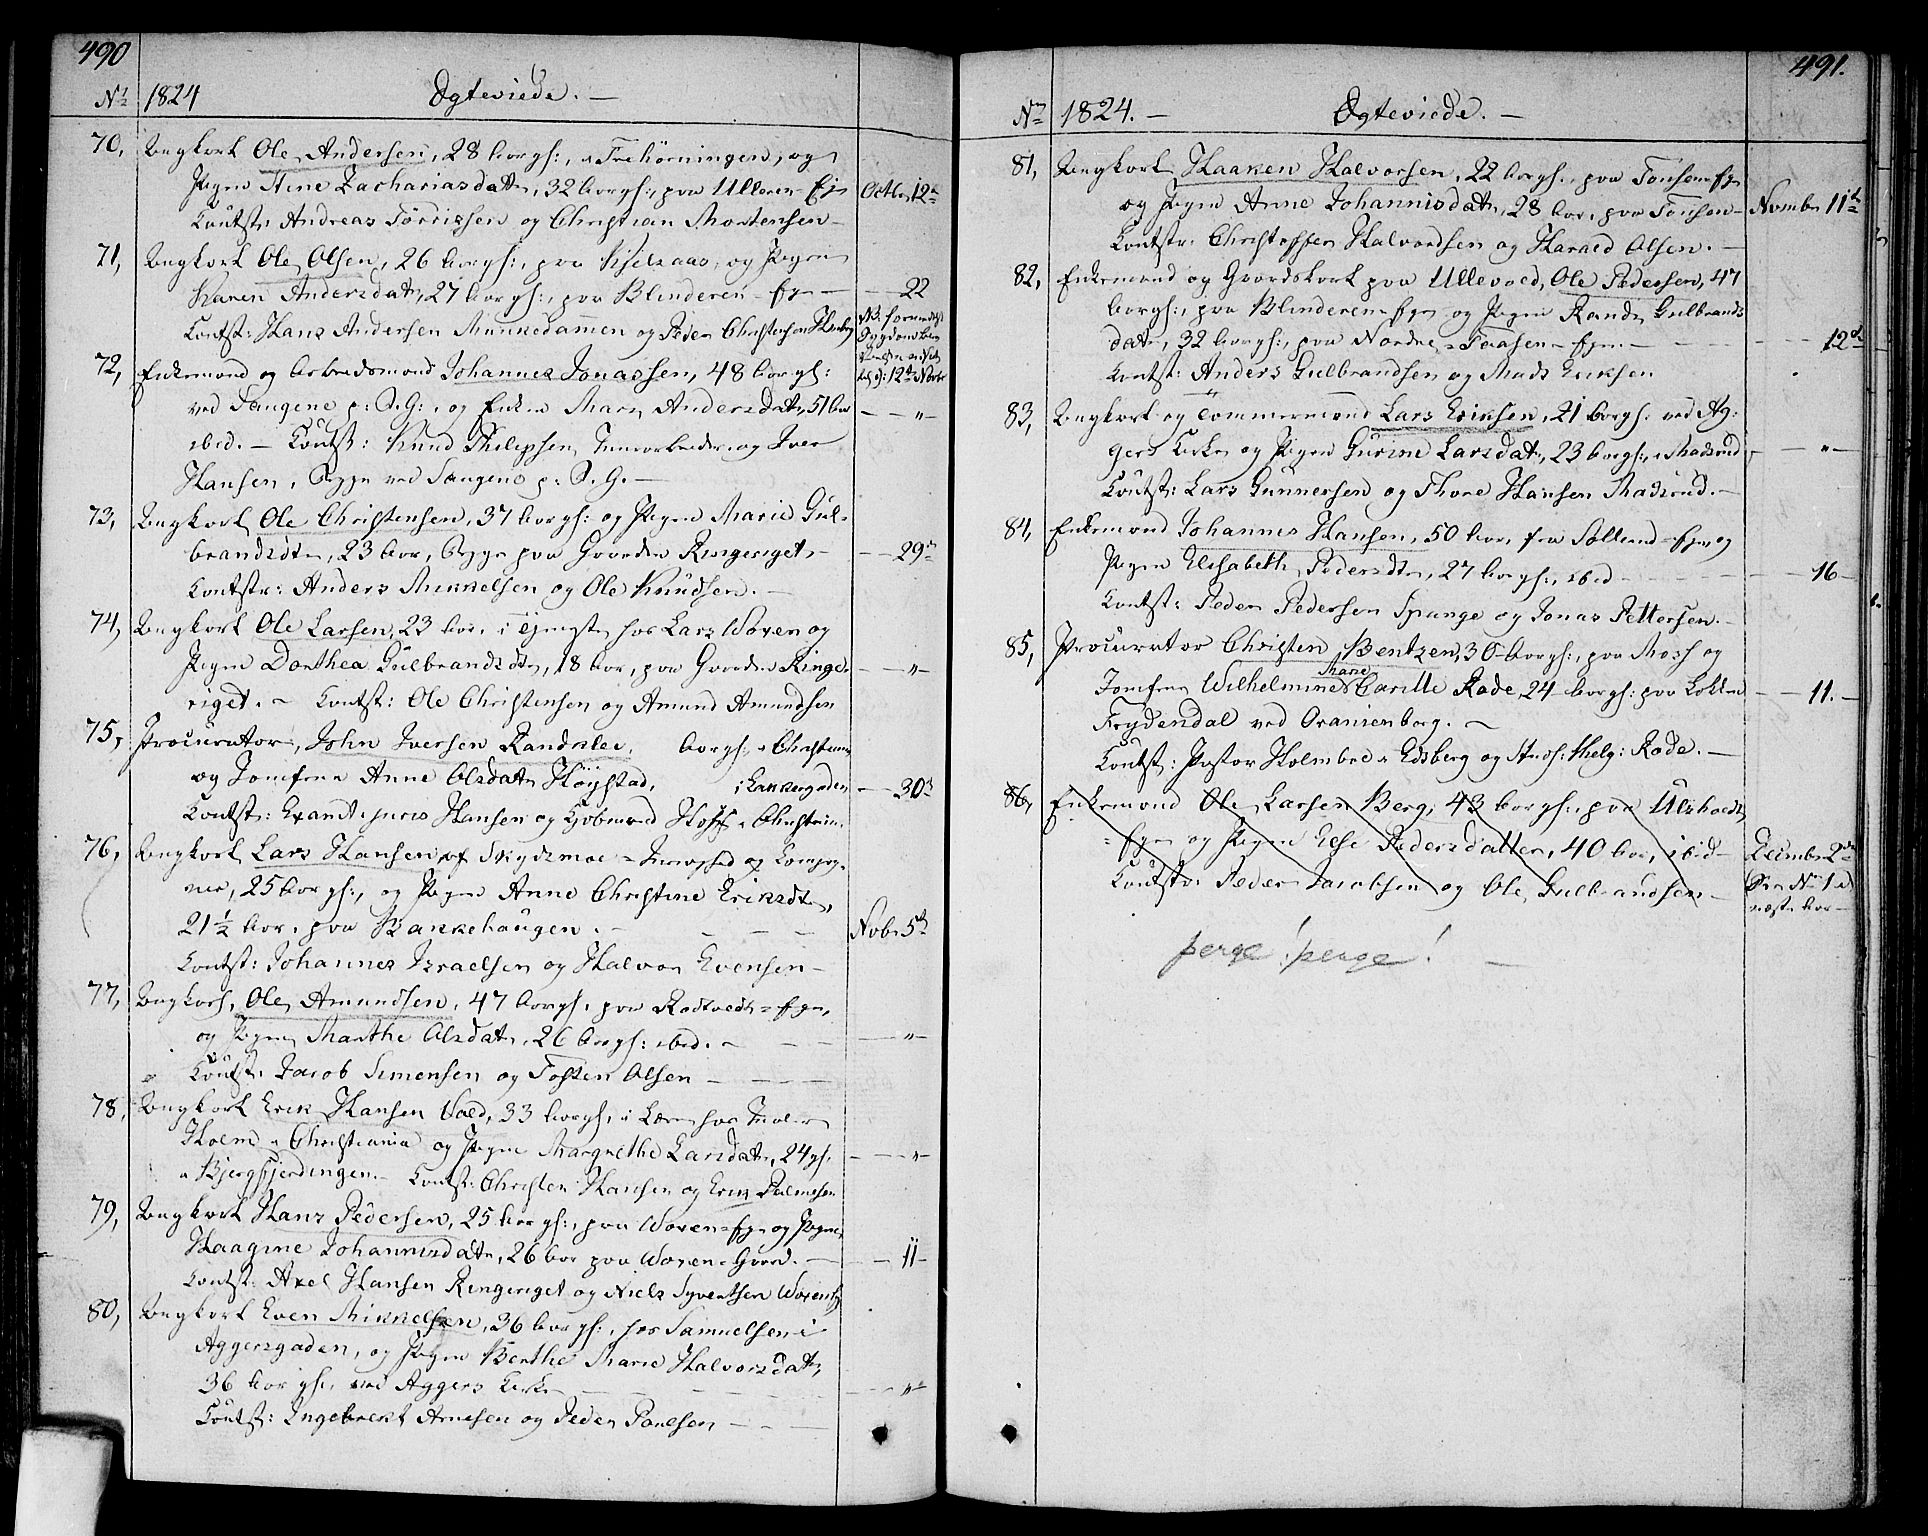 490
No 1824 Ægteviede. —
70, Ungkarl Ole Andersen, 28 Aar gl:, i Frehörningen, og
Pigen Stine Zachariasdatr, 32 Aar gl:, paa Ulleren Eje Octbr 12te
Coutst: Andreas Tördissen og Christian Mortensen —
71, Ungkarl Ole Olsen, 26 Aar gl:, paa Kjelsaas, og Pigen
Karen Andersdatr, 27 Aar gl:, paa Blinderen-Eje — — 22
Coutst: Hans Andersen Munkedammen og Peder Christensen
72, Enkemand og Arbeidsmand Johannes Jonassen, 48 Aar gl: 12te Novbr
ved Saugene p: S.G:, og Enken Mari Andersdatr, 51 Aar — — " —
ibid. — Coutst: Knud Philipsen og Iver
Hansen, Bygn ved Saugene p: S.G. —
73, Ungkarl Ole Christensen, 37 Aar gl: og Pigen Marie Gul-
brandsdtr, 23 Aar, Begge paa Gaarden Ringeriget — — — 29de
Coutstr: Anders Mikkelsen og Ole Knudsen. —
74, Ungkarl Ole Larsen, 23 Aar, i Tjeneste hos Lars Woxen og
Pigen Dorthea Gulbrandsdtr, 18 Aar, paa Gaarden Ringe- — — " —
riget. — Coutst: Ole Christensen og Amund Amundsen
75, Procurator, John Iversen Randklev, Aar gl: i Christiania
og Jomfrue Anne Olsdatr Höjstad, i Lakkergaden — — 30te
Coutst: Exand: juris Hansen og Kjøbmand Hoff i Christian.
76, Ungkarl Lars Hansen, af Skydsmoe
25 Aar gl:, og Pigen Anne Christine Eriksdtr,
21 1/2 Aar, paa Bakkehaugen. — — — — Novbr 5te
Coutst: Johannes Israelsen og Halvor Evensen —
77, Ungkarl, Ole Amundsen, 47 Aar gl:, paa Rödtvedt-Eje,
og Pigen Marthe Olsdatr, 26 Aar gl: ibid. — — — " —
Coutst: Jacob Simensen og Tosten Olsen — — —
78, Ungkarl Erik Hansen Wold, 33 Aar gl, i Lære hos Maler
Holm i Christiania og Pigen Margrethe Larsdatr, 24 gl. — — " —
i Bjergfjerdingen. — Coutst: Christen Hansen og Erik Palmesen
79, Ungkarl Hans Pedersen, 25 Aar gl:, paa Woxen-Eje og Pigen
Haagine Johannisdatr, 26 Aar paa Woxen-Gaard. — — — 11 —
Coutst: Axel Hansen Ringeriget og Niels Syvertsen Woxen
80, Ungkarl Even Mikkelsen, 36 Aar gl:, hos Samuelsen i
Aggersgaden, og Pigen Berthe Marie Halvorsdatr,
36 Aar gl, ved Aggers Kirke — — — — — " —
Coutst: Ingebrekt Arnesen og Peder Paulsen — — —
491.
No 1824. — Ægteviede. —
81, Ungkarl Haaken Halvorsen, 22 Aar gl:, paa Tonsen-Eje
og Pigen Anne Johannisdatr, 28 Aar, paa Tonsen — Novmbr 11te
Coutstr: Christopher Halvordsen og Harald Olsen. —
82, Enkemand og Gaardskarl paa Ullevold, Ole Pedersen, 47
Aar gl:, paa Blinderen-Eje og Pigen Randi Gulbrands
datr, 32 Aar gl:, paa Nordre-Taasen-Eje. — — — 12te
Coutst: Anders Gulbrandsen og Mads Eriksen
83, Ungkarl og Tömmermand Lars Eriksen, 21 Aar gl: ved Ag-
gers Kirke og Pigen Gurine Larsdatr, 23 Aar gl:, i Madserud — " —
Coutst: Lars Gunnersen og Thore Hansen Madserud. —
84, Enkemand Johannes Hansen, 50 Aar, fra Solland-Eje, og
Pigen Elisabeth Pedersdtr, 27 Aar gl:, ibid — — — 16 —
Coutst: Peder Pedersen Spange og Jonas Pettersen. —
85, Procurator Christen Bentzen, 30 Aar gl:, paa Moss og
Jomfrue Wilhelmine Marie Carille Rode, 24 Aar gl: paa Løkken — — 11. —
Frydendal ved Oranienborg. —
Coutst: Pastor Holmboe i Edsberg og Rode. —
86, Enkemand Ole Larsen Berg, 43 Aar gl:, paa Ulsholdt
-Eje og Pigen Else Pedersdatter, 40 Aar, ibid — Decmbr 2den
Coutstr: Peder Jacobsen og Ole Gulbrandsen — (See No 1 i
næste Aar —
perge! perge! —